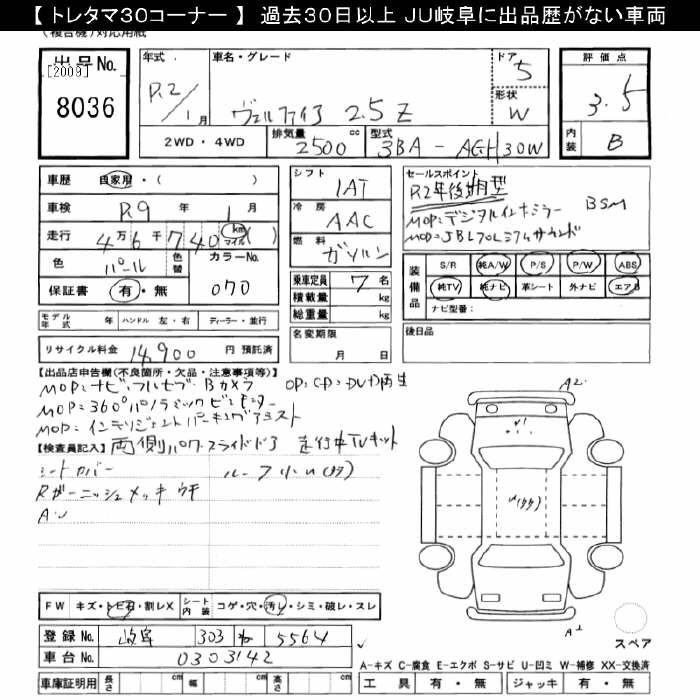 【 トレタマ30コーナー 】 過去30日以上 JU岐阜に出品歴がない車両
(複合機)対応用紙
出品No.
[2009]
8036
年式 R.2/1月
車名・グレード
ヴェルファイア 2.5Z
ドア 5
形状 W
2WD・4WD
排気量 2500 cc
型式 3BA-AGH30W
評価点
3.5
内装 B
車歴 自家用・( )
車検 R9年 1月
走行 4万6千740 km マイル ( )
色 パール
色替
カラーNo. 070
保証書 有・無
シフト 1AT
冷房 AAC
燃料 ガソリン
乗車定員 7名
積載量 kg
総重量 kg
セールスポイント
R2年後期型
BSM
MOP:デジタルインナーミラー
MOP:JBLプレミアムサウンド
装備品
S/R 純A/W P/S P/W ABS
純TV 純ナビ 革シート 外ナビ エアB
ナビ型番:
モデル年式 年 ハンドル 左・右 ディーラー・並行
リサイクル料金 14,900 円 預託済
名変期限 月 日
後日品
【出品店申告欄(不良箇所・欠品・注意事項等)】
MOP:ナビ、フルセグ、Bカメラ OP:CD・DVD再生
MOP:360°パノラミックビューモニター
MOP:インテリジェントパーキングアシスト
両側パワースライドドア 走行中TVキット
【検査員記入】
シートカバー
Rガーニッシュメッキウキ
A.U
FW キズ・トビ石・割レX
シート内装 コゲ・穴・汚レ・シミ・破レ・スレ
登録No. 岐阜 303 ね 5564
車台No. 0303142
A2
スペア
A-キズ C-腐食 E-エクボ S-サビ U-凹ミ W-補修 XX-交換済
車庫証明用 長さ cm 幅 cm 高さ cm
工具 有・無 ジャッキ 有・無